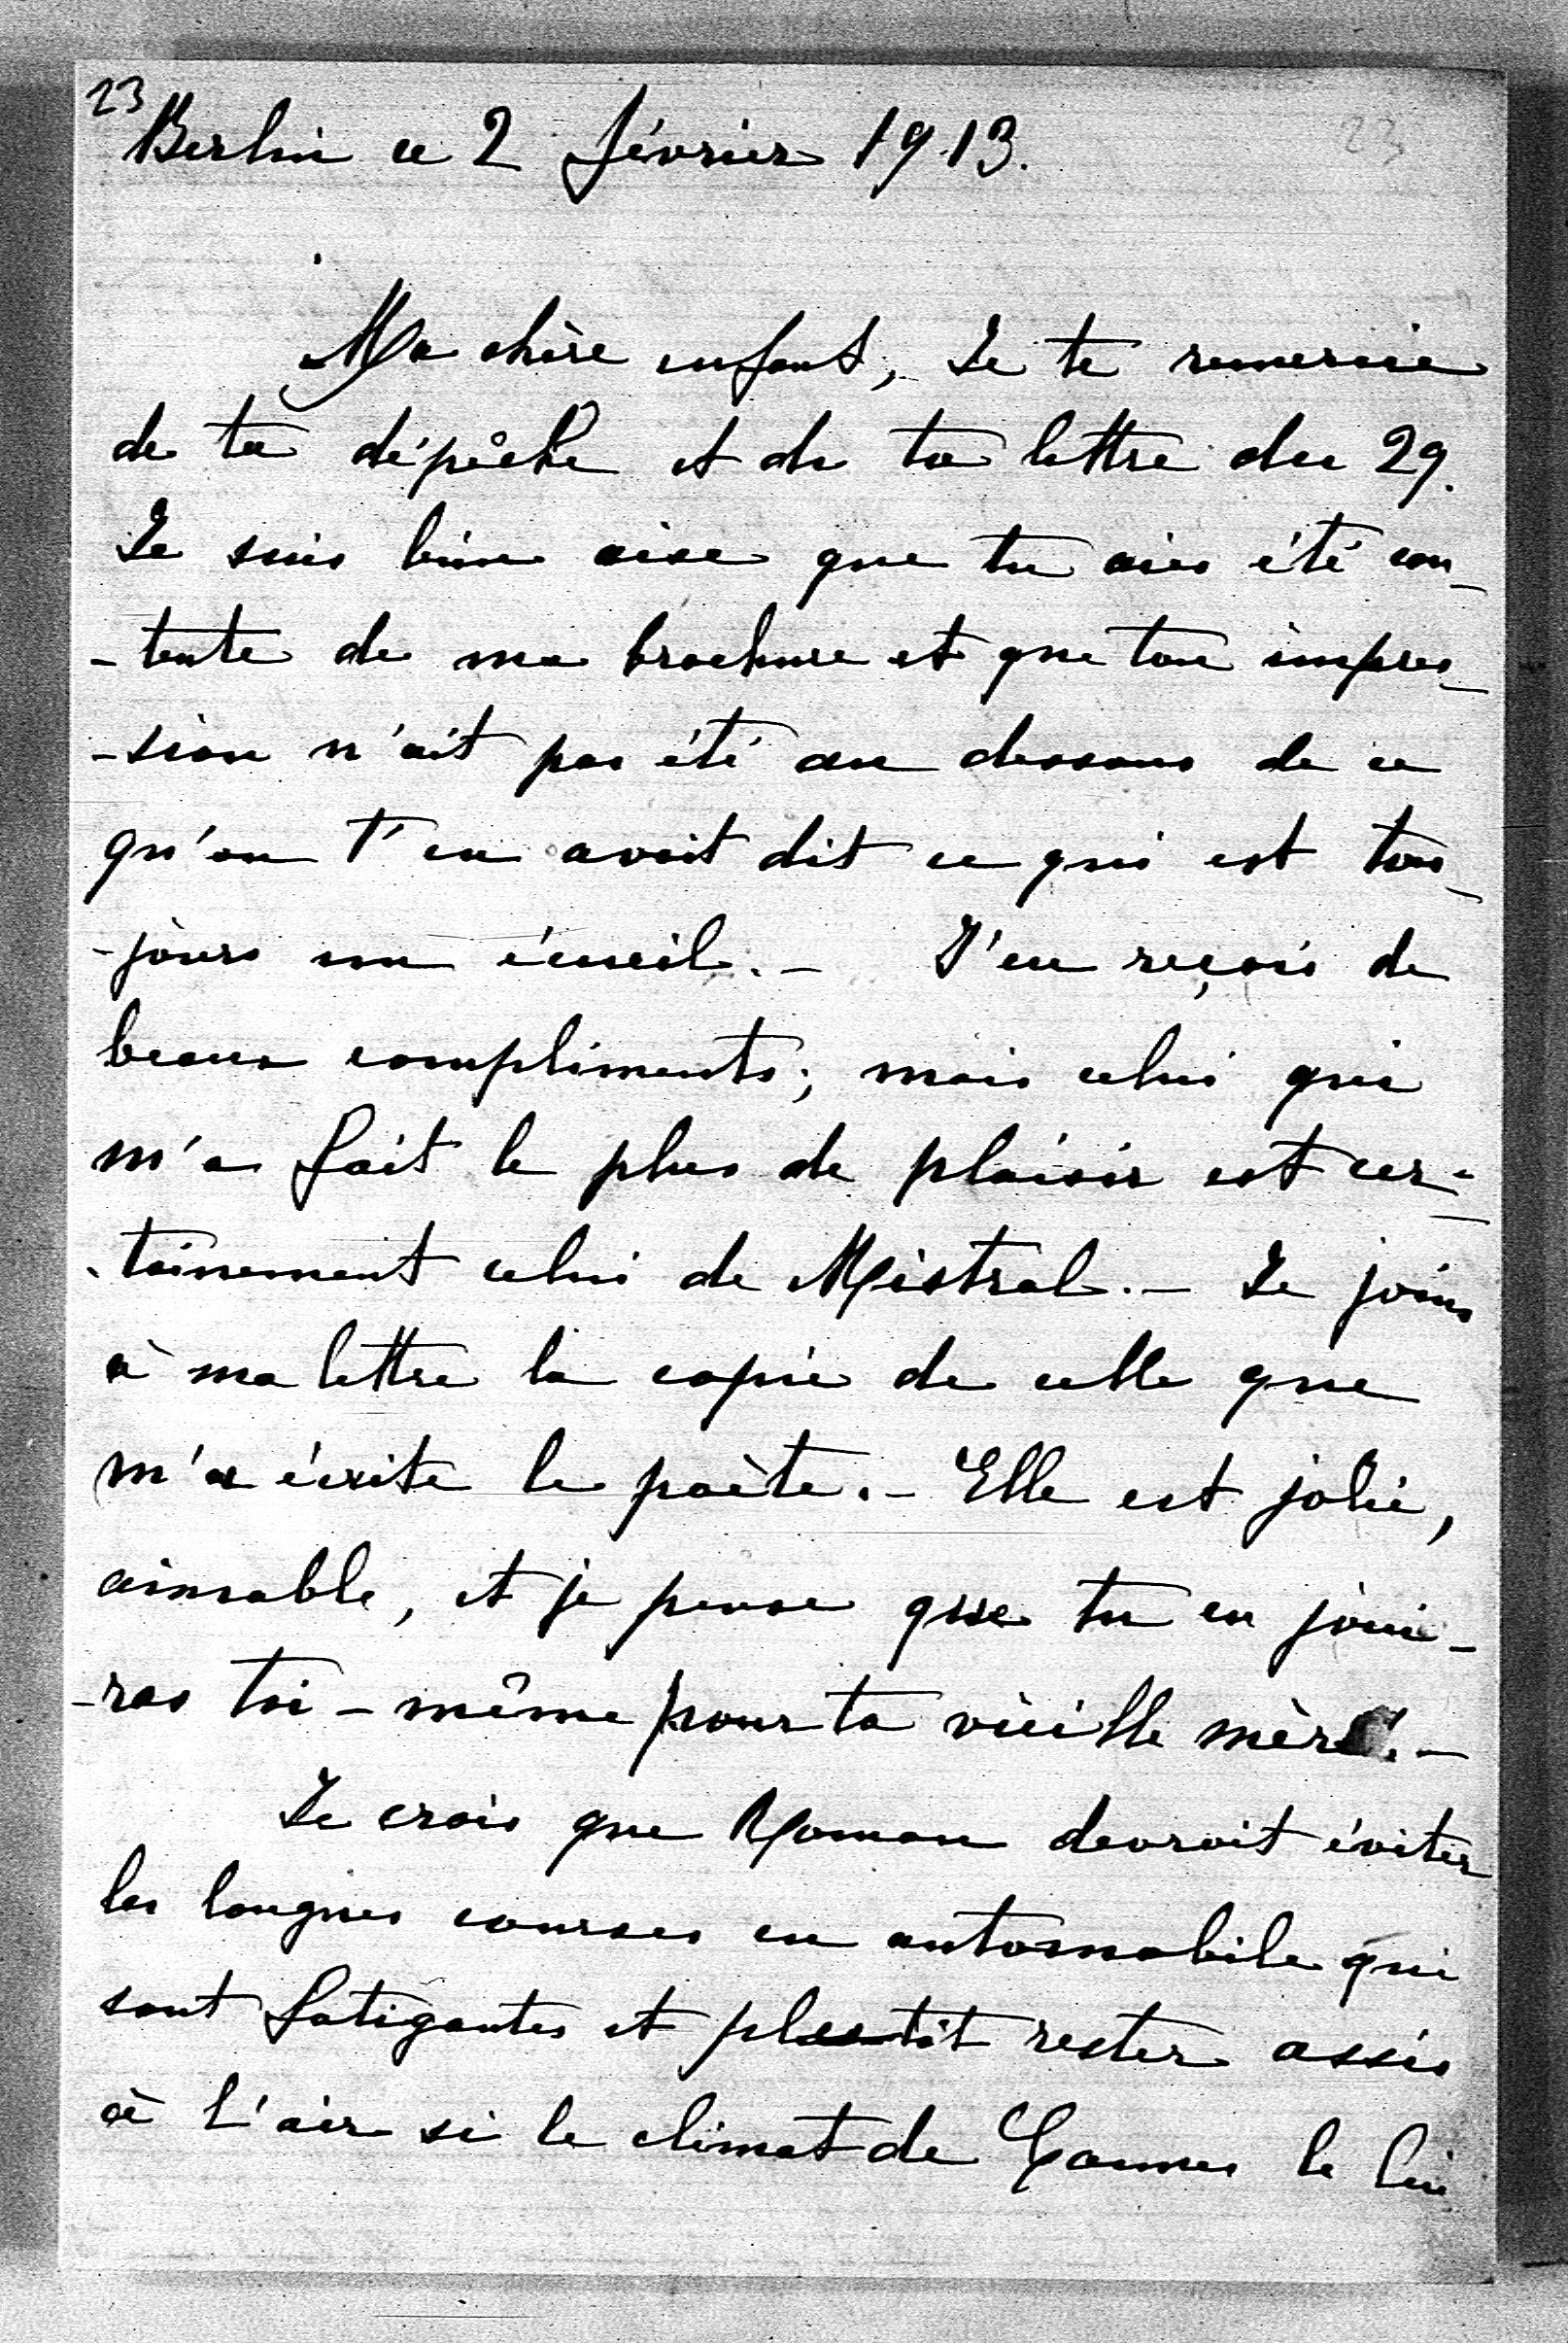 23
23
Berlin ce 2 février 1913.
Ma chère enfant, Je te remercie
de ta dépêche et de ta lettre du 29.
Je suis bien aise que tu aies été con-
-tente de ma brochure et que ton impres-
-sion n'ait pas été au dessous de ce
qu'on t'en avait dit ce qui est tou-
-jours un écueil. - J'en reçois de
beaux compliments; mais celui qui
m'a fait le plus de plaisir est cer-
-tainement celui de Mistral. - Je joins
à ma lettre la copie de celle que
m'a écrite le poète. - Elle est jolie,
aimable, et je pense que tu en joui-
-ras toi-même pour ta vieille mère. -
Je crois que Roman devrait éviter
les longues courses en automobile qui
sont fatigantes et plutôt rester assis
à l'air si le climat de Cannes le lui